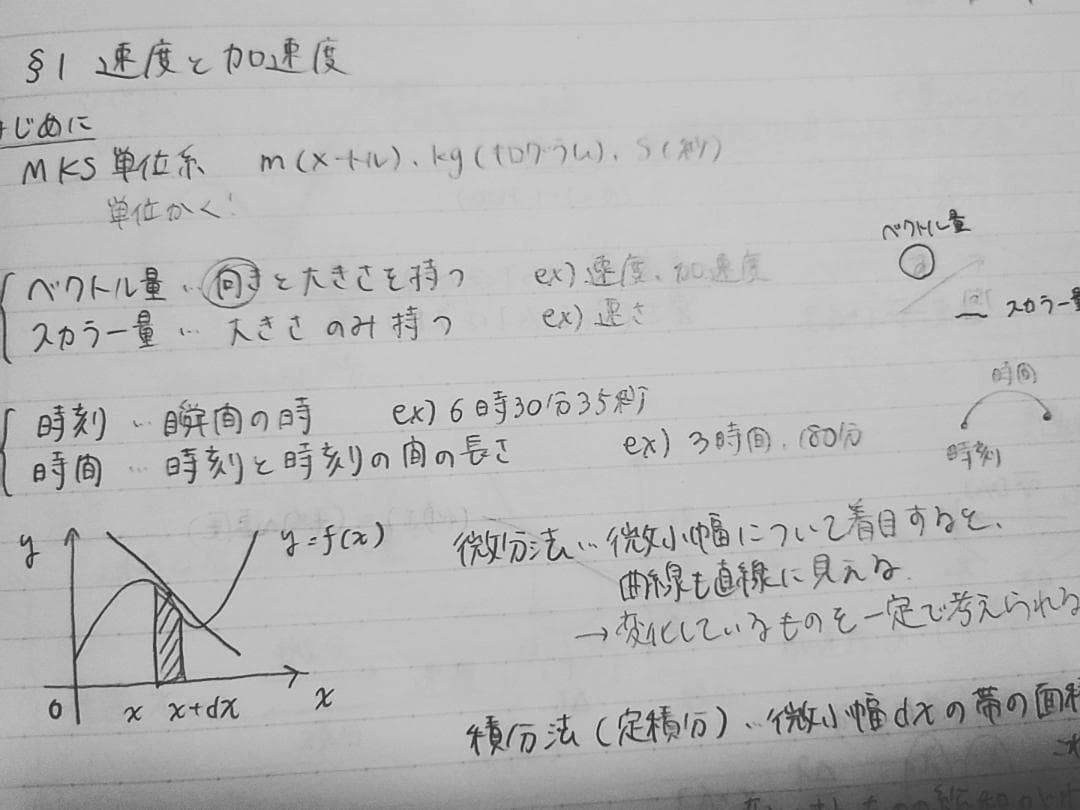 §1 速度と加速度
はじめに
MKS単位系 m(メートル)、kg(キログラム)、s(秒)
単位かく!
ベクトル量
ベクトル量…向きと大きさを持つ ex) 速度、加速度
スカラー量
スカラー量… 大きさのみ持つ ex) 速さ
時間
時刻 … 瞬間の時 ex) 6時30分35秒
時刻
時間 … 時刻と時刻の間の長さ ex) 3時間、180分
y
y=f(x)
微分法…微小幅について着目すると、
曲線も直線に見える
→変化しているものを一定で考えられる
0 x x+dx x
積分法(定積分)…微小幅dxの帯の面積